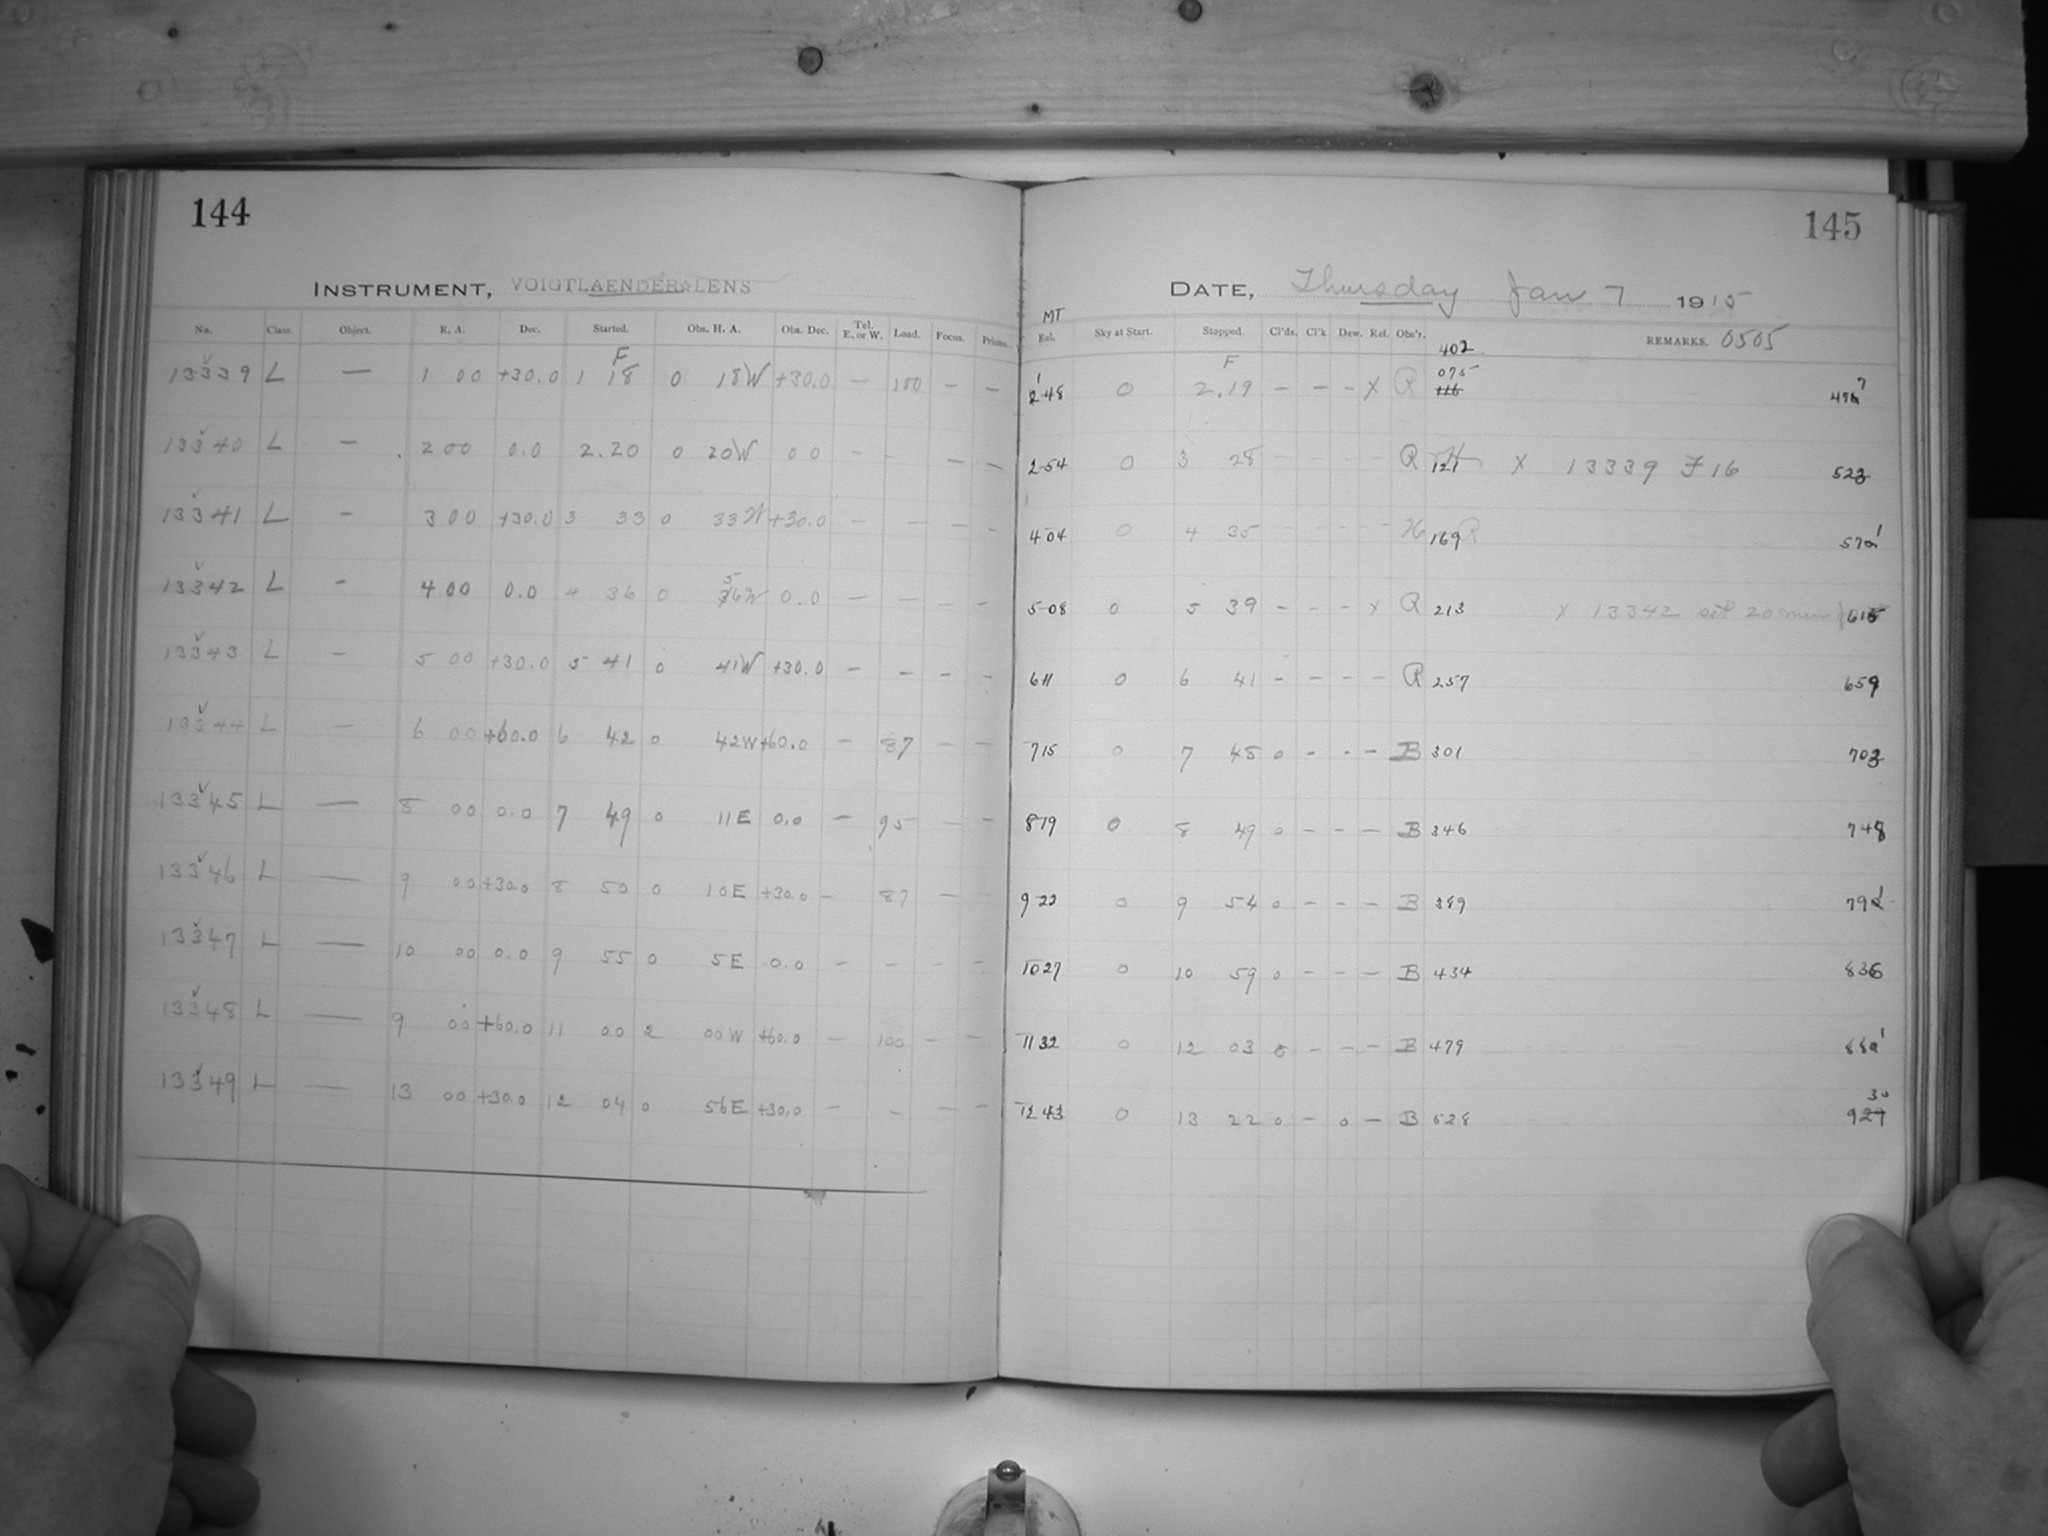 144
INSTRUMENT, VOIGTLAENDER LENS
No. Class. Object. R. A. Dec. Started. Obs. H. A. Obs. Dec. Tel. E. or W. Load. Focus. Prisms.
F
13339 L — 1 00 +30.0 1 18 0 18W +30.0 — 100 — —
13340 L — 2 00 0.0 2.20 0 20W 0 0 — - — —
13341 L — 3 00 +30.0 3 33 0 33W +30.0 — — — —
5
13342 L - 4 00 0.0 4 36 0 36W 0.0 — — — —
13343 L — 5 00 +30.0 5 41 0 41W +30.0 — — — —
13344 L — 6 00 +60.0 6 42 0 42W +60.0 — 87 — —
13345 L — 8 00 0.0 7 49 0 11E 0.0 — 95 — —
13346 L — 9 00 +30.0 8 50 0 10E +30.0 — 87 — —
13347 L — 10 00 0.0 9 55 0 5E 0.0 — — — —
13348 L — 9 00 +60.0 11 00 2 00W +60.0 — 100 — —
13349 L — 13 00 +30.0 12 04 0 56E +30.0 — — — —
145
DATE, Thursday Jan 7 1915
MT
Eal. Sky at Start. Stopped. Cl'ds. Cl'k Dew. Ref. Obs'r. REMARKS. 0505
402
F
1 075 7
2 48 0 2.19 — — — X R 116 476
2-54 0 3 28 - - - - R 121 X 13339 F 16 523
4 04 0 4 35 - - - - R 169 572 1
5-08 0 5 39 - - - X R 213 X 13342 set 20 min 615
6 11 0 6 41 - - - - R 257 659
7 15 0 7 48 0 - - - B 301 703
8 19 0 8 49 0 - - - B 346 748
9 22 0 9 54 0 - - - B 389 792 1
10 27 0 10 59 0 - - - B 434 836
11 32 0 12 03 0 - - - B 479 882 1
30
12 43 0 13 22 0 - 0 - B 528 927